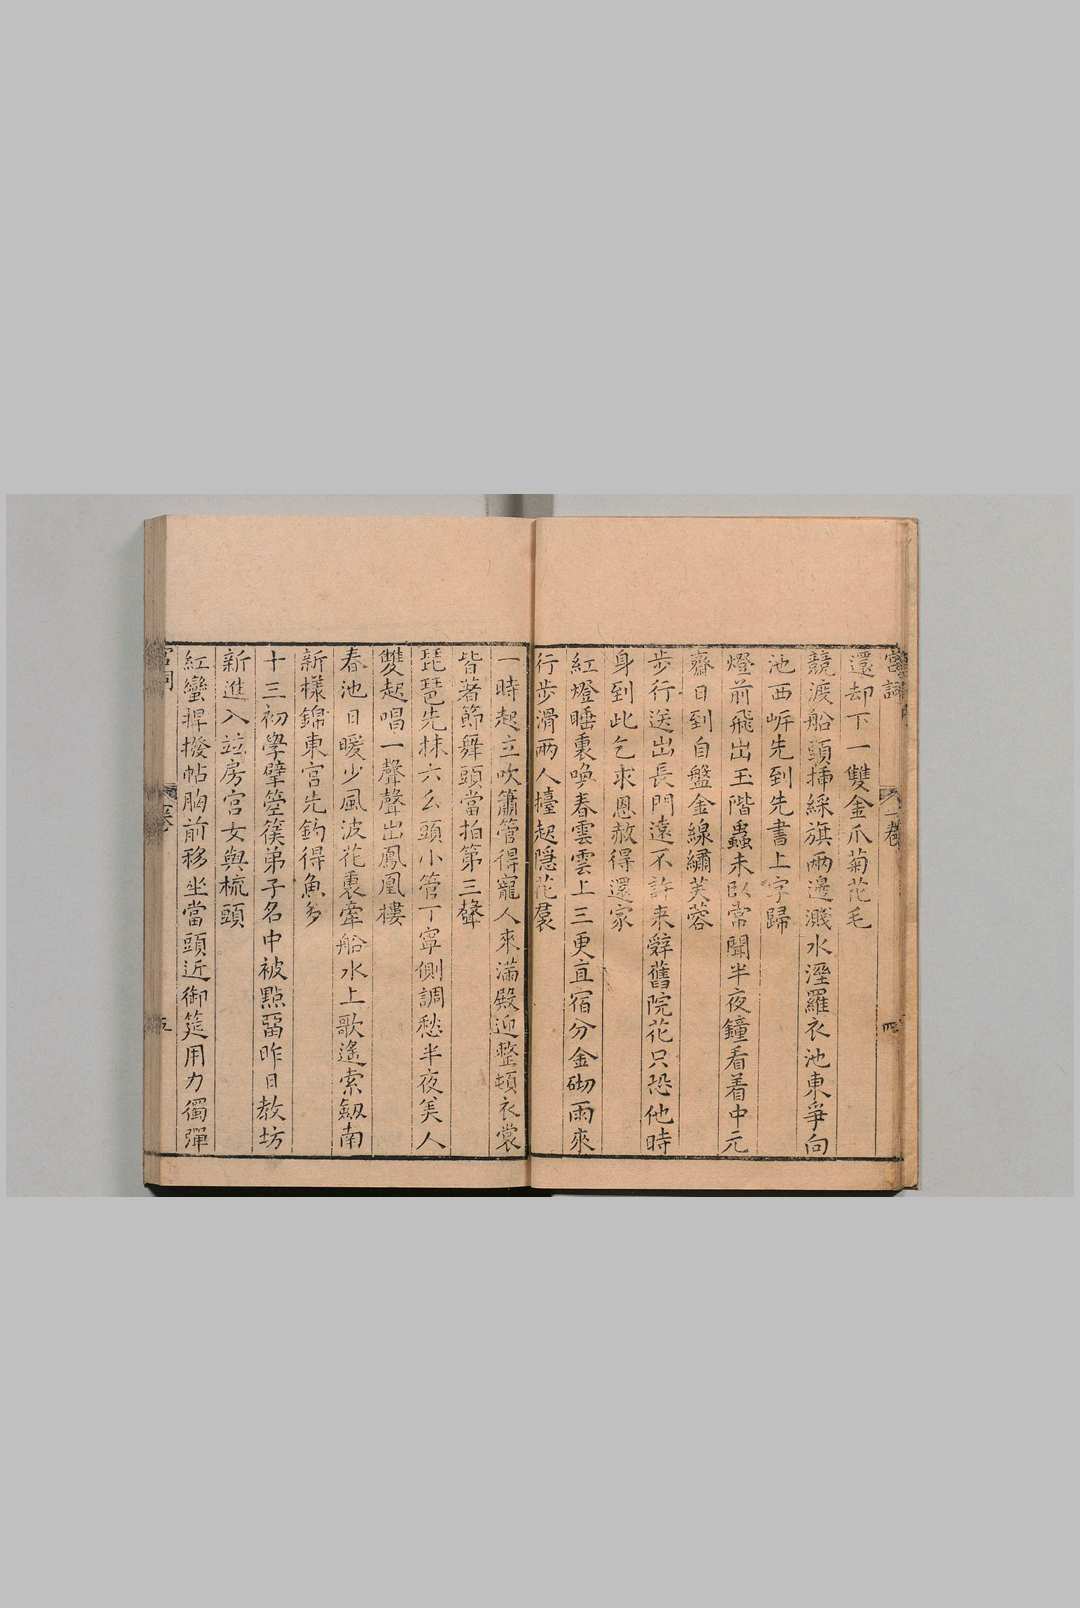 宮詞
一卷
四
還却下一雙金爪菊花毛
競渡船頭揷綵旗兩邊濺水溼羅衣池東爭向
池西岸先到先書上字歸
燈前飛出玉階蟲未臥常聞半夜鐘看着中元
齋日到自盤金線繡芙蓉
步行送出長門遠不許来辤舊院花只恐他時
身到此乞求恩赦得還家
紅燈睡裏喚春雲雲上三更直宿分金砌雨來
行步滑兩人擡起隱花裠
一時起立吹簫管得寵人來滿殿迎整頓衣裳
皆著節舞頭當拍第三聲
琵琶先抹六幺頭小管丁寧側調愁半夜美人
雙起唱一聲聲出鳳凰樓
春池日暖少風波花裏牽船水上歌遙索劔南
新樣錦東宮先釣得魚多
十三初學擘箜篌弟子名中被點留昨日教坊
新進入並房宮女與梳頭
紅蠻捍撥帖胸前移坐當頭近御筵用力獨彈
宮詞
五